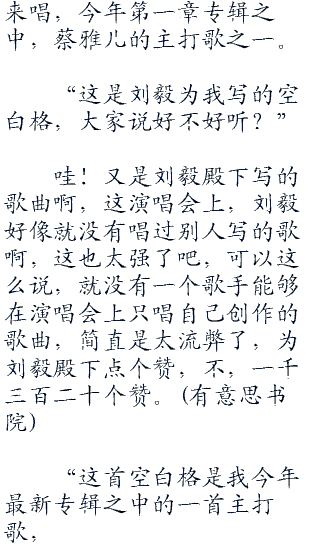 来唱，今年第一章专辑之
中，蔡雅儿的主打歌之一。
“这是刘毅为我写的空
白格，大家说好不好听？”
哇！又是刘毅殿下写的
歌曲啊，这演唱会上，刘毅
好像就没有唱过别人写的歌
啊，这也太强了吧，可以这
么说，就没有一个歌手能够
在演唱会上只唱自己创作的
歌曲，简直是太流弊了，为
刘毅殿下点个赞，不，一千
三百二十个赞。(有意思书
院)
“这首空白格是我今年
最新专辑之中的一首主打
歌，